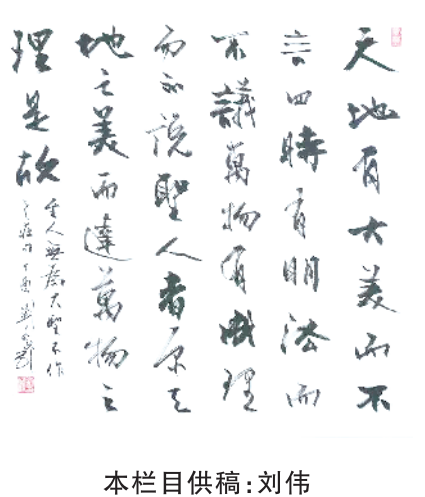 天地有大美而不
言四時有明法而
不議萬物有成理
而不說聖人者原天
地之美而達萬物之
理是故
至人無為大聖不作
丁酉
本栏目供稿：刘伟